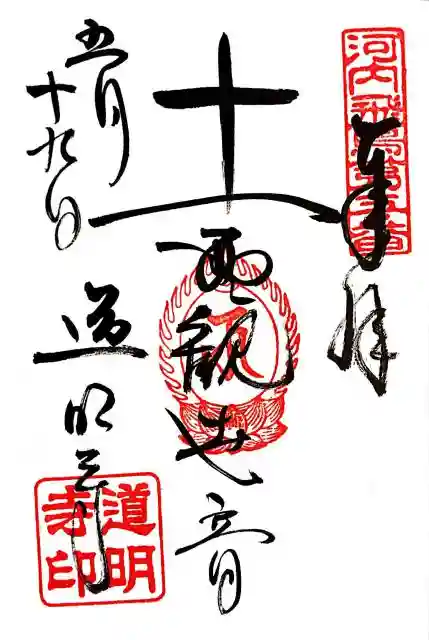 河内飛鳥第
奉拝
十一面観世音
五月
十九日
道明寺
道明
寺印